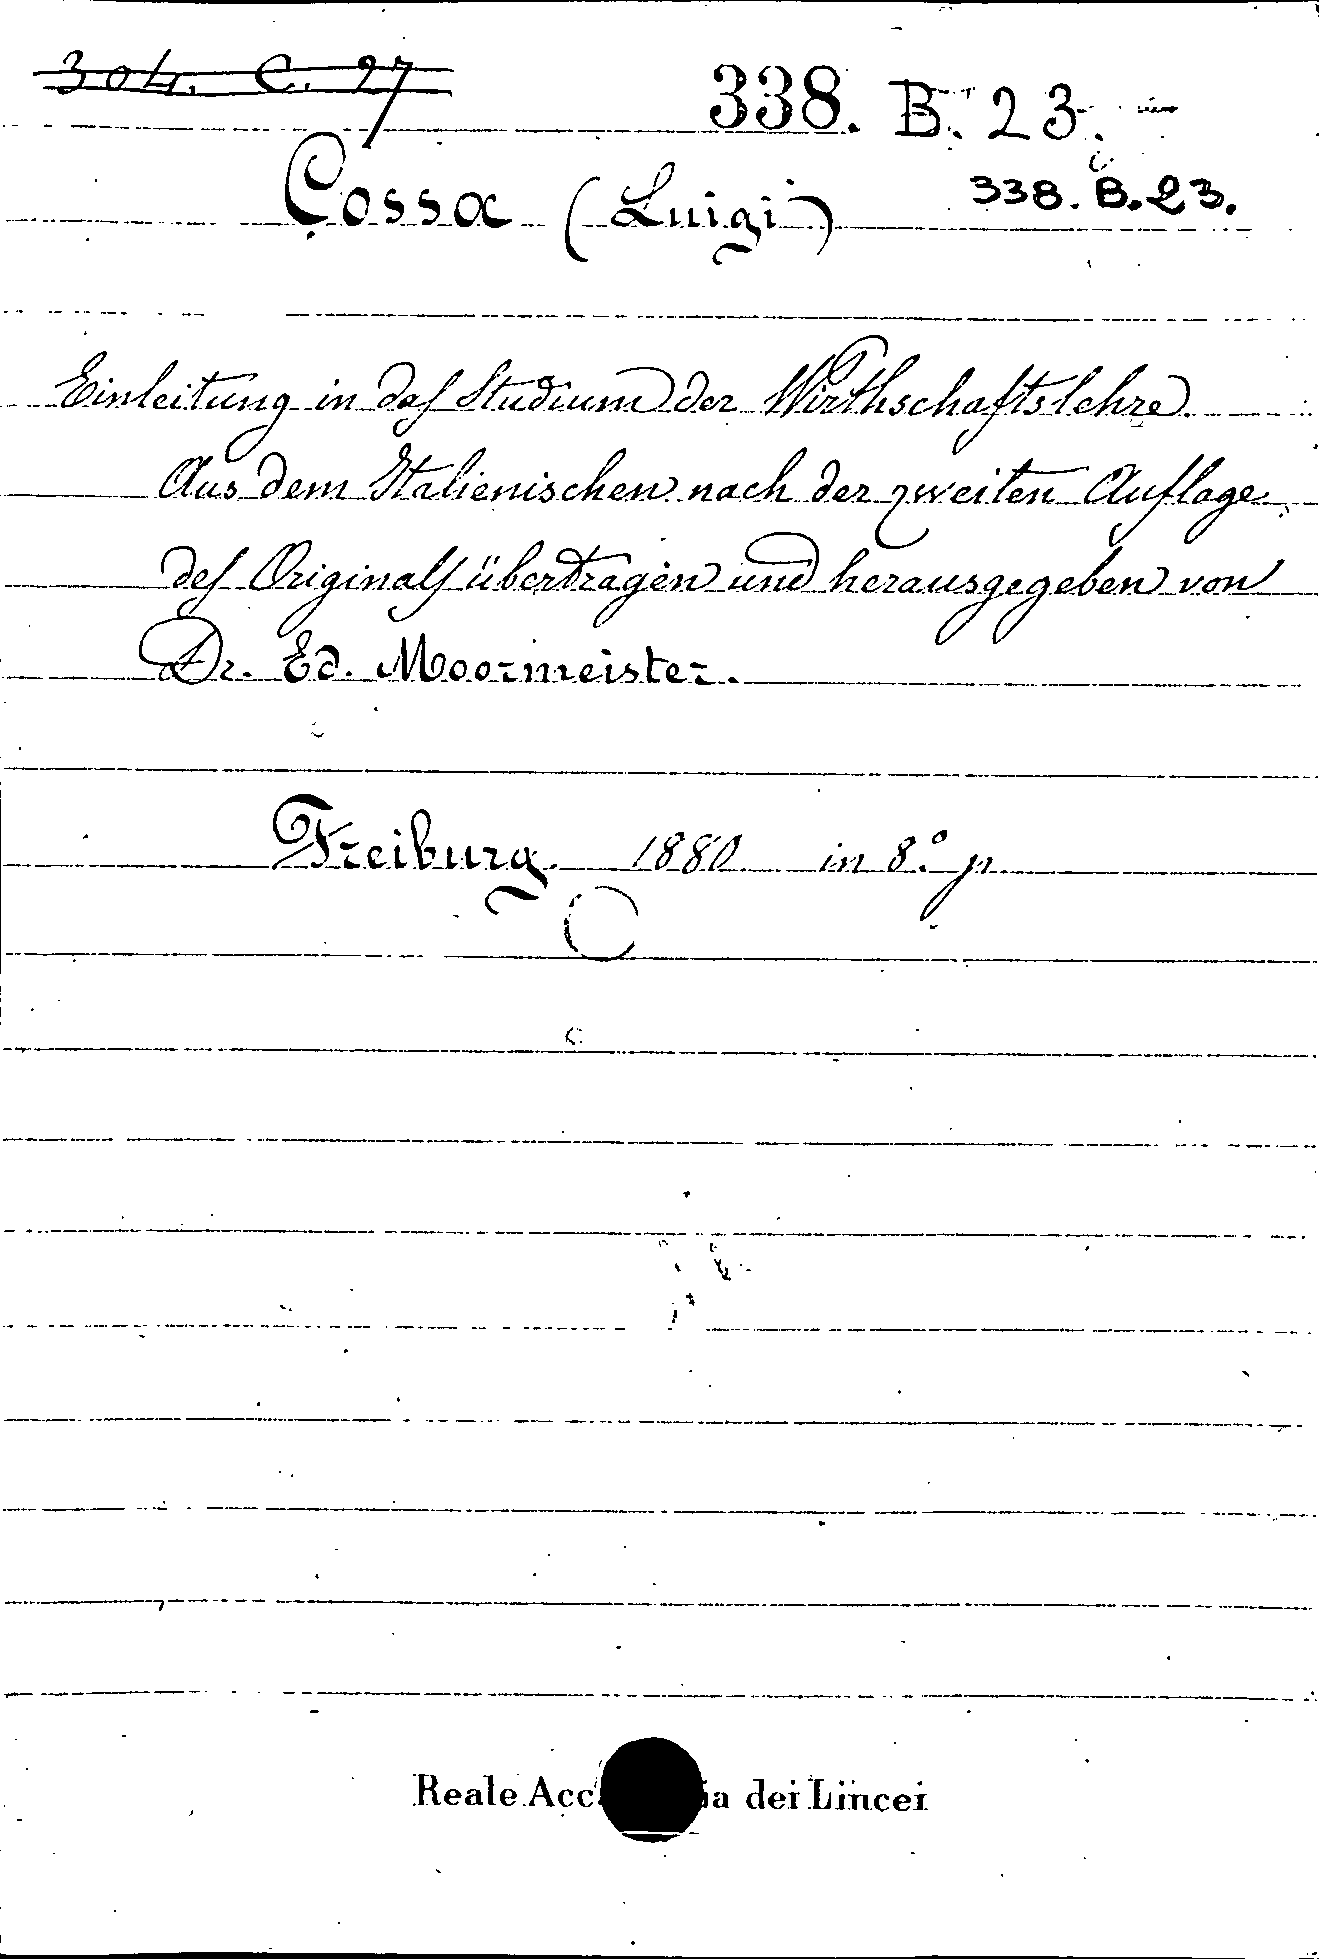 304. C. 27
338. B. 23.
Cossa (Luigi)
338. B. 23.
Einleitung in das Studium der Wirthschaftslehre.
Aus dem Italienischen nach der zweiten Auflage
des Originals übertragen und herausgegeben von
Dr. Ed. Moormeister.
Freiburg. 1880 in 8.º p.
Reale dei Lincei